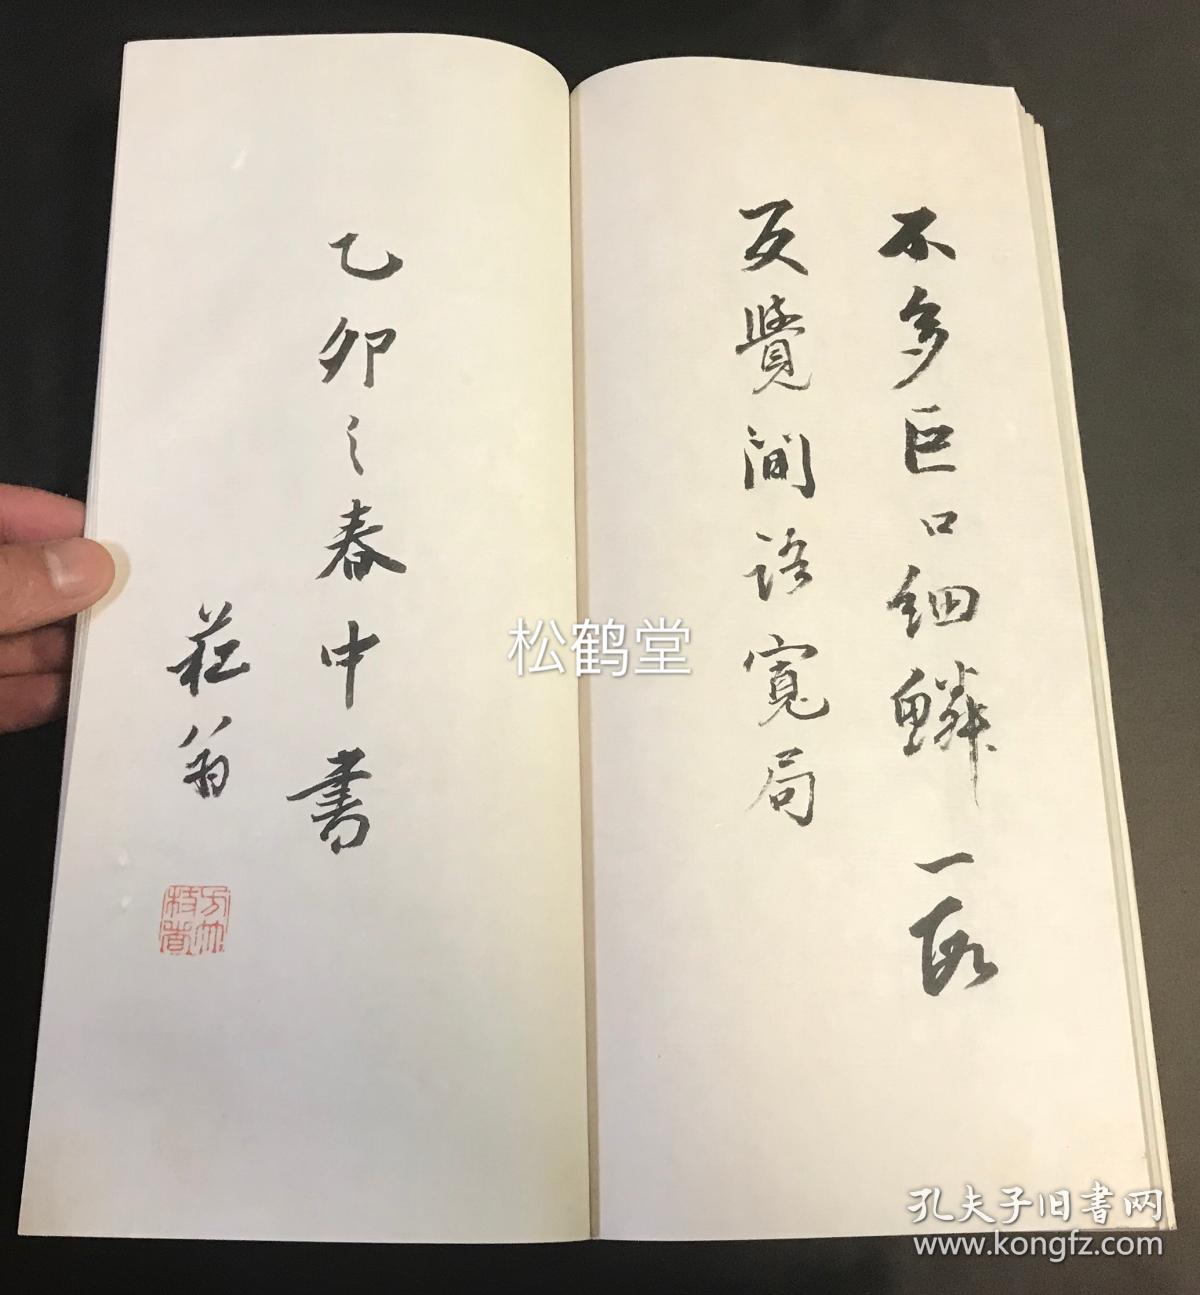 不多巨口細鱗一段
反覺閒語寬局
乙卯之春中書
莊翁
松鹤堂
孔夫子旧书网
www.kongfz.com